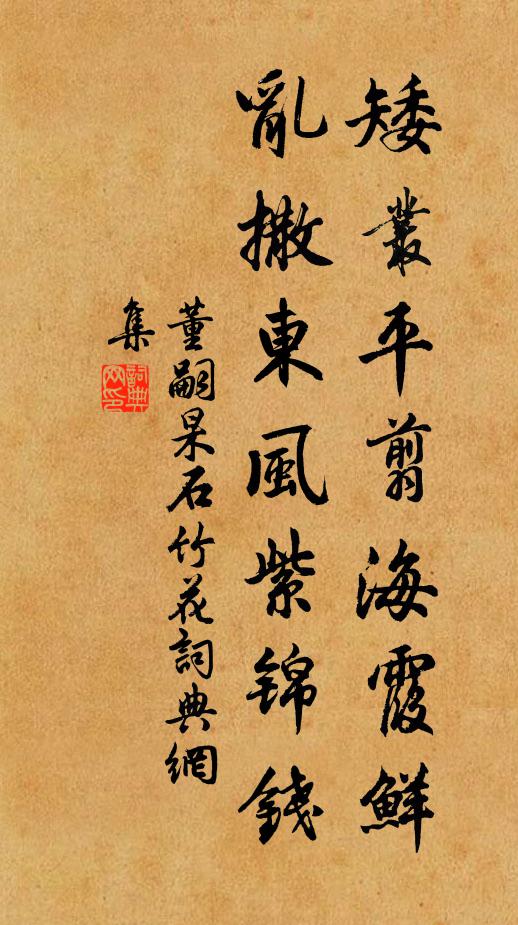 矮叢平翦海霞鮮
亂撒東風紫錦錢
董嗣杲石竹花詞典網
集
詞典
网印